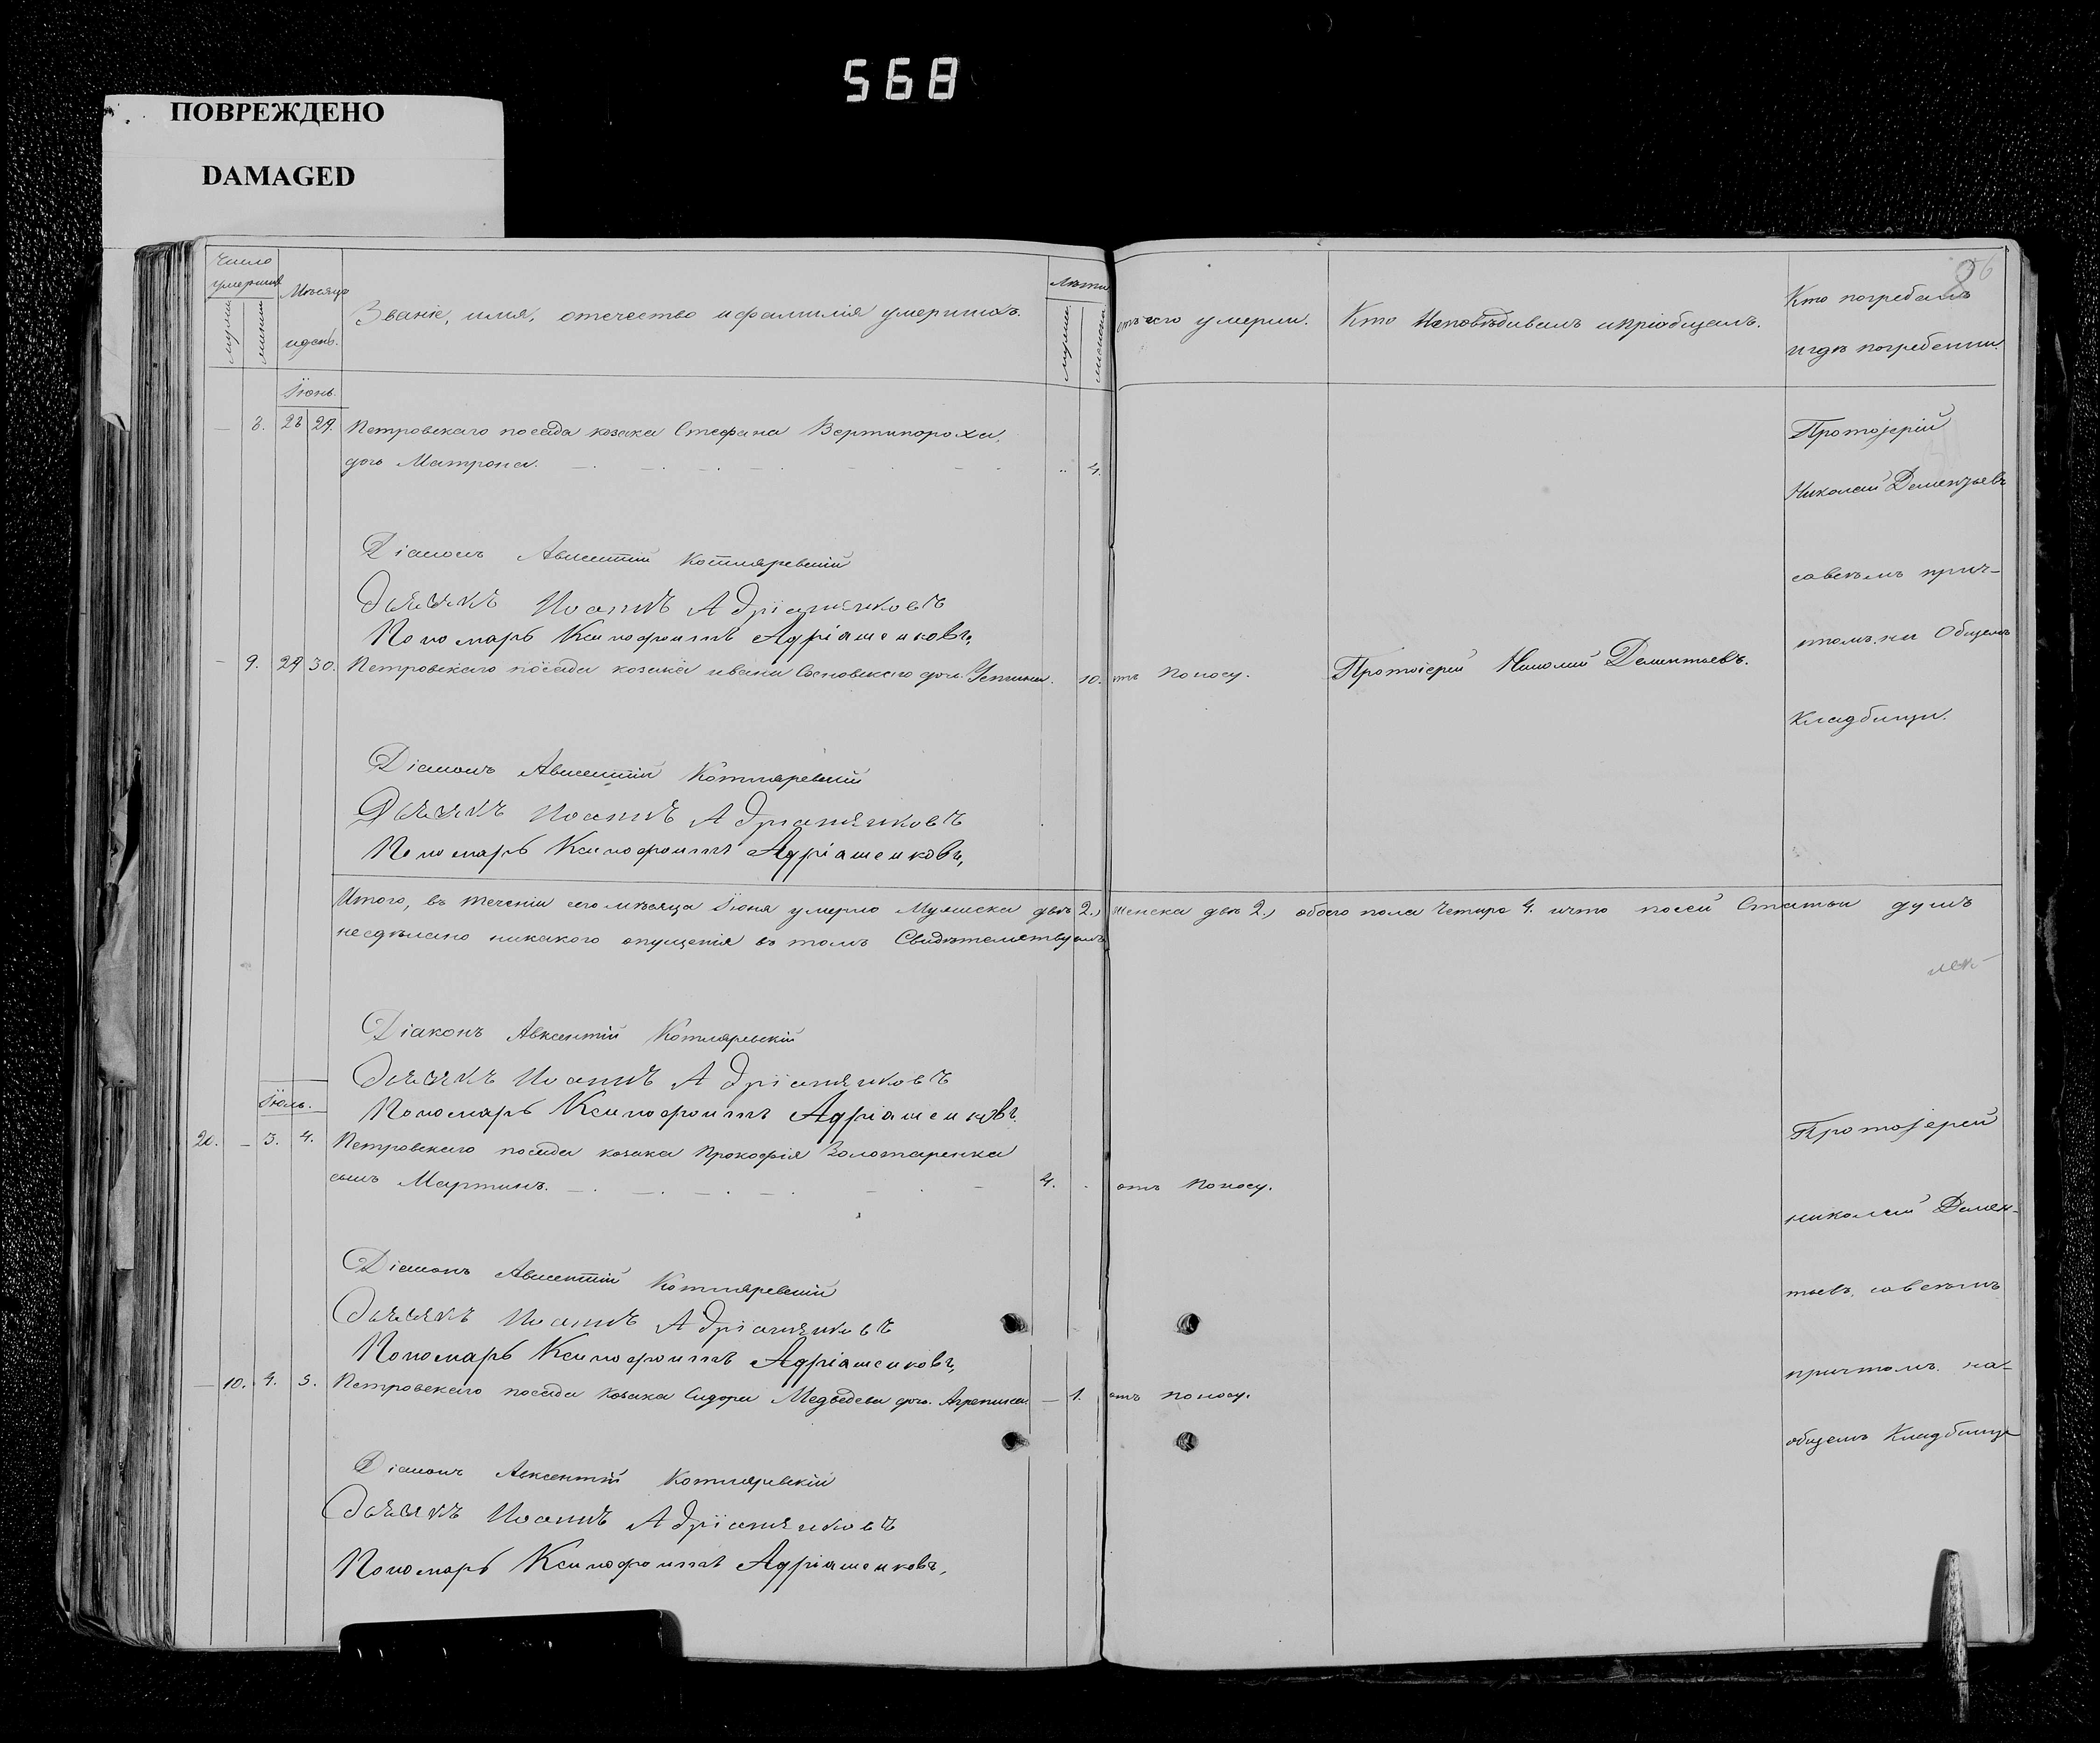 568
ПОВРЕЖДЕНО
DAMAGED
Число умершихъ
мужеска
женска
Мѣсяцъ и день.
Званіе, имя, отечество и фамилія умершихъ.
Лѣта
мужеска
женска
отъ чего умерли.
Кто Исповѣдывалъ и пріобщалъ.
Кто погребалъ
и гдѣ погребенны.
Іюнь.
— 8. 28 29. Петровскаго посада козака Стефана Вертипороха,
дочь Матрона. 4.
Протоіерій
Николай Дементьевъ
совсѣмъ прич-
томъ на Общемъ
Кладбищи.
Діаконъ Авксентій Котляревскій
Дьячекъ Иоаннъ Адріяненковъ
Пономарь Ксинофонтъ Адріаненковъ,
— 9. 29 30. Петровскаго посада козака Ивана Сосновскаго дочь Устинья. 10. отъ Поносу. Протоіерей Николай Дементьевъ.
Діаконъ Авксентій Котляревскій
Дьячекъ Иоаннъ Адріяненковъ
Пономарь Ксинофонтъ Адріаненковъ,
Итого, въ теченіи сего мѣсяца Іюня умерло Мужеска двѣ 2., Женска двѣ 2., обоего пола Четыре 4. и что посей Статьи душъ
несдѣлано никакого опущенія въ томъ Свидѣтельствуемъ
Діаконъ Авксентій Котляревскій
Дьячекъ Иоаннъ Адріяненковъ
Пономарь Ксинофонтъ Адріаненковъ.
Іюль.
20. — 3. 4. Петровскаго посада козака Прокофія Золотаренка
сынъ Мартинъ. 4. отъ Поносу.
Протоіерей
Николай Демен-
тьевъ совсѣмъ
причтомъ на-
общемъ Кладбищи
Діаконъ Авксентій Котляревскій
Дьячекъ Иоаннъ Адріяненковъ
Пономарь Ксинофонтъ Адріаненковъ,
— 10. 4. 5. Петровскаго посада козака Сидора Медведева дочь Агрепина — 1. отъ поносу.
Діаконъ Авксентій Котляревскій
Дьячекъ Иоаннъ Адріяненковъ
Пономарь Ксинофонтъ Адріаненковъ,